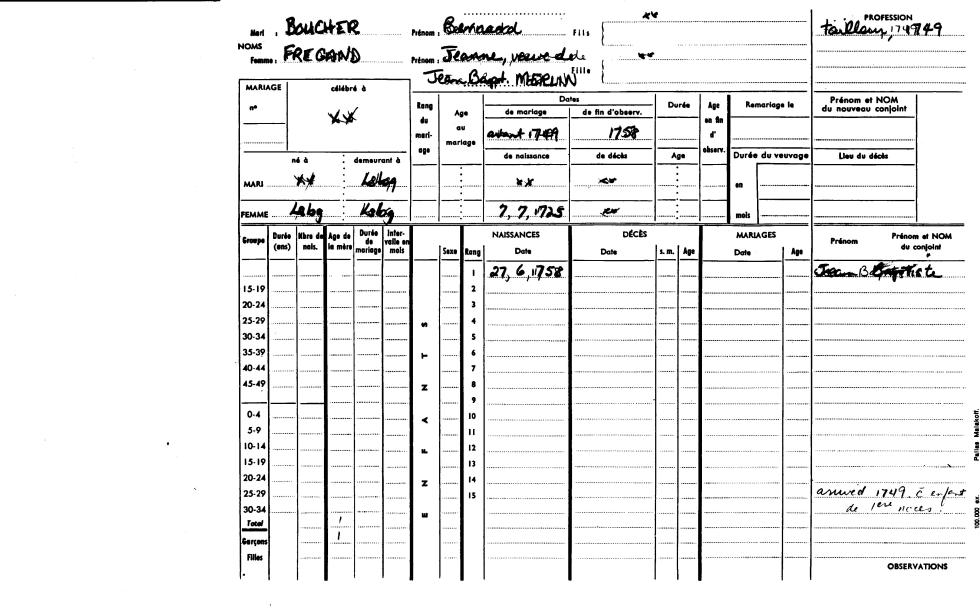 PROFESSION
Mari : BOUCHER Prénom : Bernard Fils ** tailleur, 1749
NOMS
Femme : FREGAND Prénom : Jeanne, veuve de Fille **
Jean Bapt. MERLIN
MARIAGE célébré à
n° **
Rang du mariage
Age au mariage
Dates
de mariage de fin d'observ.
avant 1749 1758
de naissance de décès
Durée
Age
Age en fin d'observ.
Remariage le
Durée du veuvage
en
mois
Prénom et NOM du nouveau conjoint
Lieu du décès
né à demeurant à
MARI ** ** **
FEMME 7, 7, 1725 **
Groupe Durée (ans) Nbre de nais. Age de la mère Durée de mariage Intervalle en mois
ENFANTS
Sexe Rang
NAISSANCES
Date
DÉCÈS
Date s. m. Age
MARIAGES
Date Age
Prénom Prénom et NOM du conjoint
1 27, 6, 1758 Jean Baptiste
15-19 2
20-24 3
25-29 4
30-34 5
35-39 6
40-44 7
45-49 8
9
0-4 10
5-9 11
10-14 12
15-19 13
20-24 14
25-29 15
30-34
Total 1
Garçons 1
Filles
1749
de 1ere noces.
OBSERVATIONS
100.000 ex.